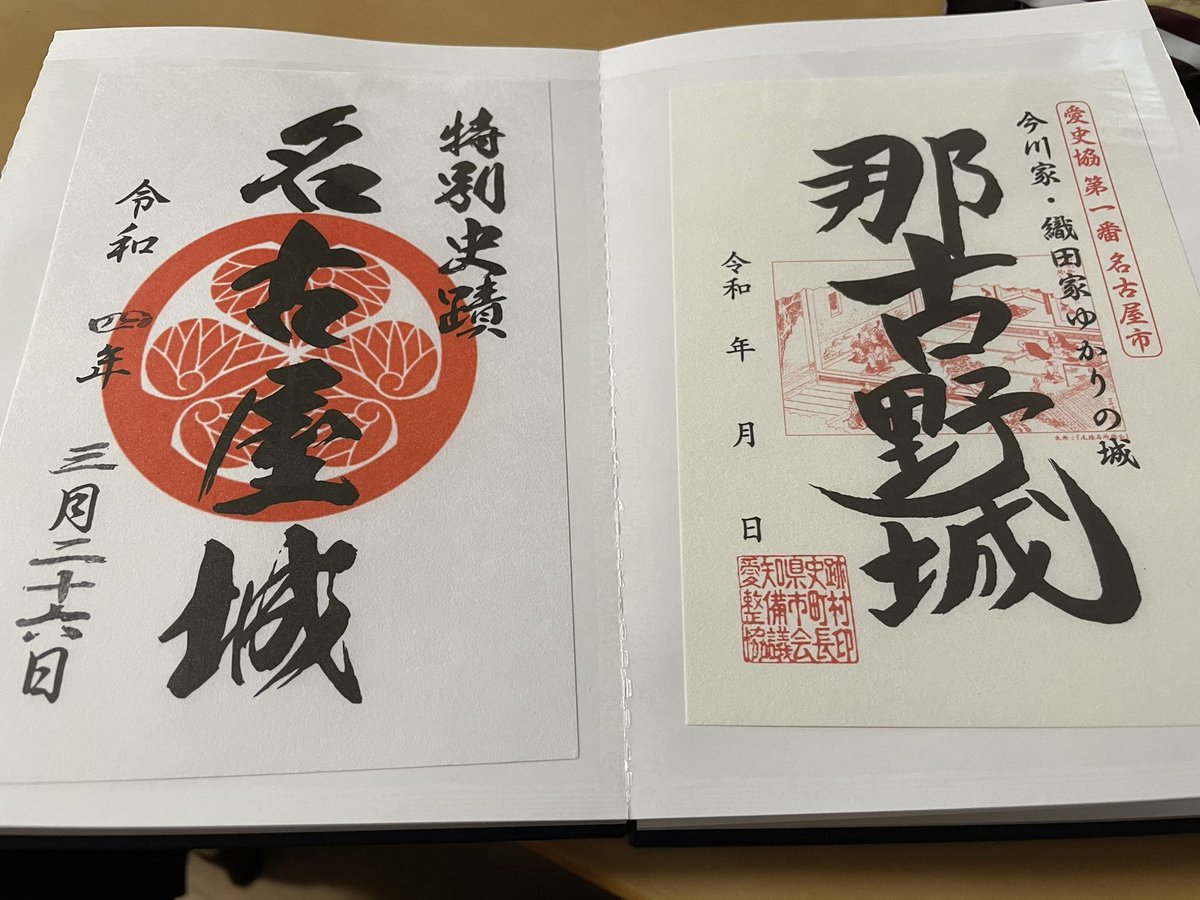 愛史協 第一番 名古屋市
今川家・織田家ゆかりの城
那古野城
令和 年 月 日
愛知県史跡
整備市町村
協議会長印
特別史蹟
名古屋城
令和 四年 三月二十六日